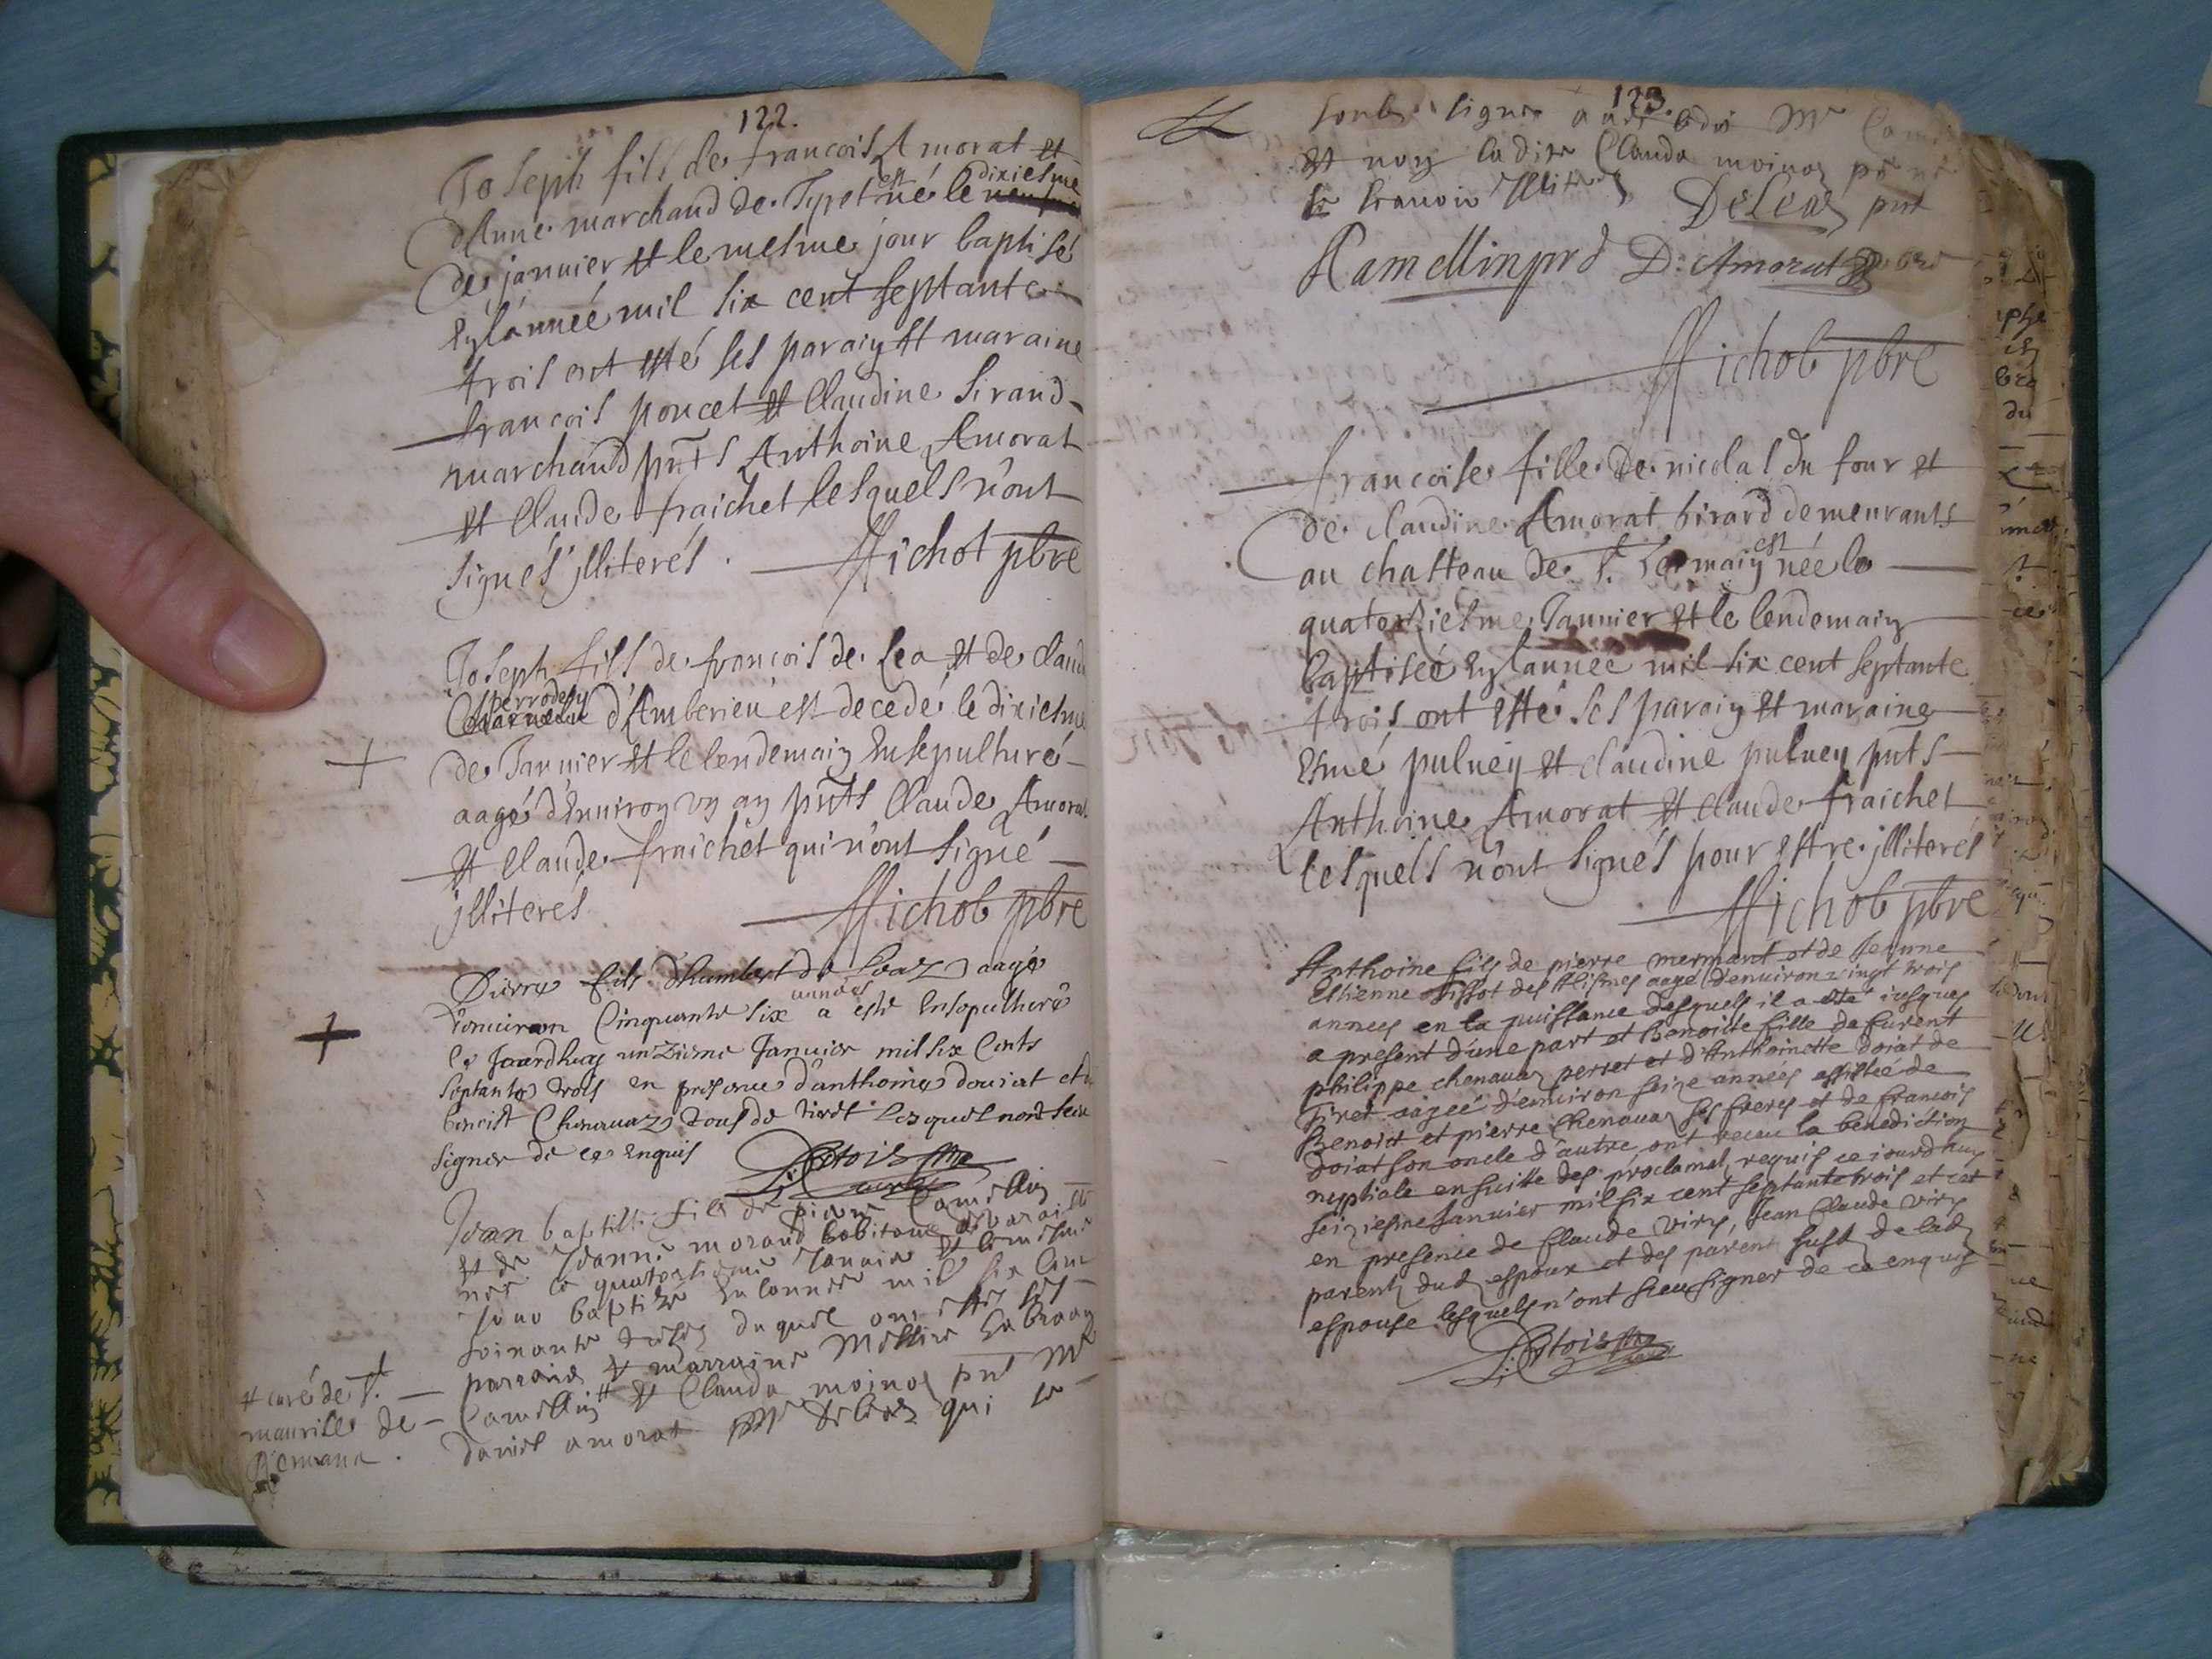 122.
Joseph fils de francois Amorat et
d'Anne marchand de Tyret est né le dixiesme
de januier et le mesme jour baptisé
en l'année mil six cent septante
trois ont esté ses parain et maraine
francois poncet et Claudine Sirand
marchand pnts Anthoine Amorat
et Claude fraichet lesquels n'ont
signés jlliterés. Michot pbre
Joseph fils de francois de Lea et de claud
perrodin d'Amberieu est decedé le dixiesme
de Januier et le lendemain Ensepulturé
aagé d'Enuiron vn an pnts Claude Amorat
et Claude fraichet qui n'ont signé
jlliterés Michot pbre
Pierre fils d'humbert de Leaz aagé
d'enuiron Cinquante six années a esté Ensepulturé
le Jourdhuy unzieme Januier mil six Cents
septante trois en presence d'anthoine douiat et de
benoist Chenauaz tous de tiret lesquels n'ont sceu
signer de ce Enquis
Jean baptiste fils de pierre Camellin
et de Jeanne morand habitant
nee le quatorzieme Januier et le mesme
Jour baptize En lannee mil six Cent
soixante treize duquel ont estes ses
parrain et marraine Messire
Camellin et Clauda moinaz pnt Mr
daniel amorat Mr deleaz qui se
+ curé de St.
maurille de
Remana.
123.
soub signe auec ledit Mr
et non ladite Clauda moinaz
Illitere
DeLeaz pnt
Ramellin prd D. Amorat
Michot pbre
francoise fille de nicolas du four et
de claudine Amorat birard demeurants
au chasteau de St. Germain est née le
quatorsiesme Januier et le lendemain
baptisée En l'annee mil six cent septante
trois ont esté ses parain et maraine
Esmé puluen et claudine puluen pnts
Anthoine Amorat et Claude fraichet
lesquels n'ont signés pour estre jlliterés
Michot pbre
Anthoine fils de pierre mermant et de Jeanne
Estienne Tissot des Allismes aagé d'enuiron vingt trois
annees en la puissance desquels il a esté iusques
a present d'une part et Benoiste fille de furent
philippe chenauaz perret et d'Anthoinette Doiat de
Tiret aagée d'enuiron seize annees assistée de
Benoist et pierre Chenauaz ses freres et de francois
Doiat son oncle d'autre ont receu la benediction
nuptiale ensuitte des proclamat. requis ce iourdhuy
seiziesme Januier mil six cent septante trois et cet
en presence de Claude viry, Jean Claude viry
parents dud espoux et des parents susd de lad
espouse lesquels n'ont sceu signer de ce enquis